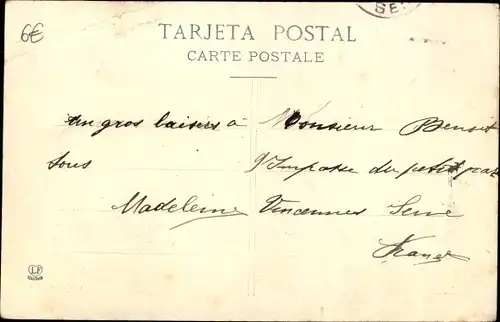 6€
TARJETA POSTAL
CARTE POSTALE
un gros baisers à
tous
Madeleine
Monsieur Benoit
9 Impasse du petit
Vincennes Seine
France
L.F